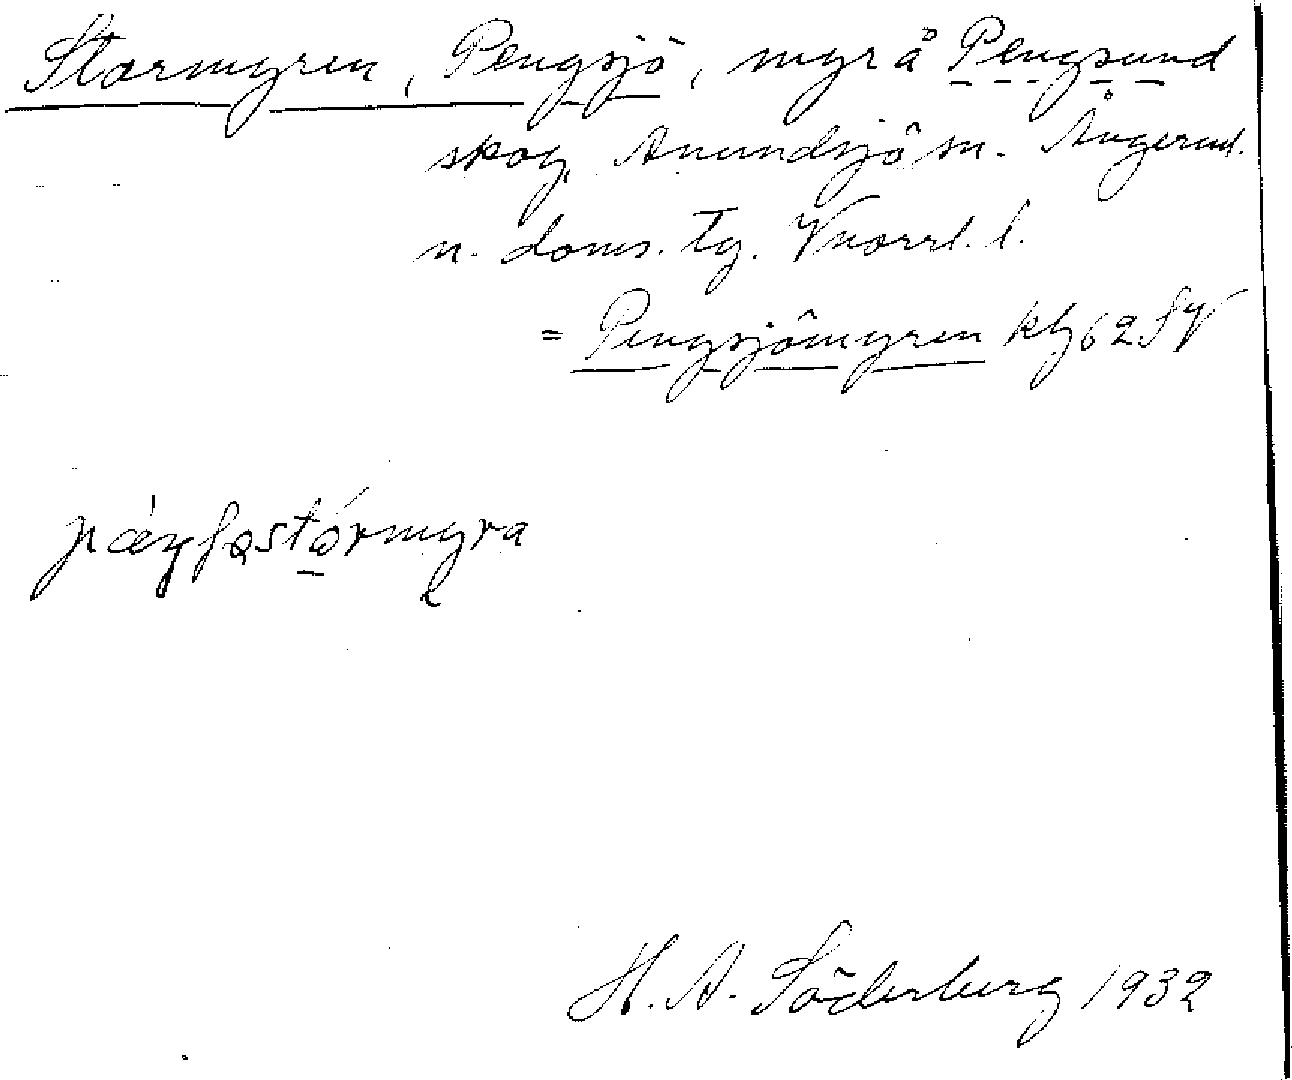 Stormyren, Pengsjö, myr å Pengsund
skog, Anundsjö sn. Ångerml.
n. doms. tg. Vnorrl. l.
= Pengsjömyren kbl 62 SV
H. A. Söderberg 1932